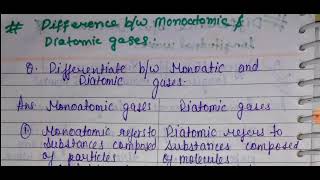 # Difference b/w Monoatomic &
Diatomic gases.
Q. Differentiate b/w Monoatic and
Diatomic gases.
Ans Monoatomic gases Diatomic gases
① Monoatomic refers to Diatomic refers to
Substances composed Substances composed
of particles of molecules